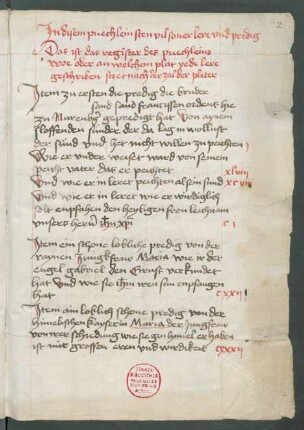 2
In disem puechlein sten vil schoner lere und predig
Das ist das register des puechleins
Wo oder an welchem plat yede lere
geschriben stet nach der zal der pleter
Item zu ersten die predig die bruder
sand francissen ordens hie
zu Nurenberg gepredigt hat Von aynem
sloffenden sunder der da lag in wollust
der sund und het nicht willen zu peichten
Wie er under weiset ward von seinem
peicht vater das er peichtet xlviii
Und wie er in leret peichten als ein sund xcvii
Und wie er in leret wie er wirdiglich
solt enpfahen den heyligen fron leichnam
unsers herrn ihu xpi c i
Item ein schone lobliche predig von der
raynen Junckfraw Maria wie ir der
engel gabriel den Grust verkundet
hat Und wie sie ihren sun enpfangen
hat cxxii
Item ain loblich schone predig von der
himelischen kayserin Maria der Junckfraw
von irer schiedung wie sie gen himel erhaben
ist mit grossen eren und wirdikeit cxxxii